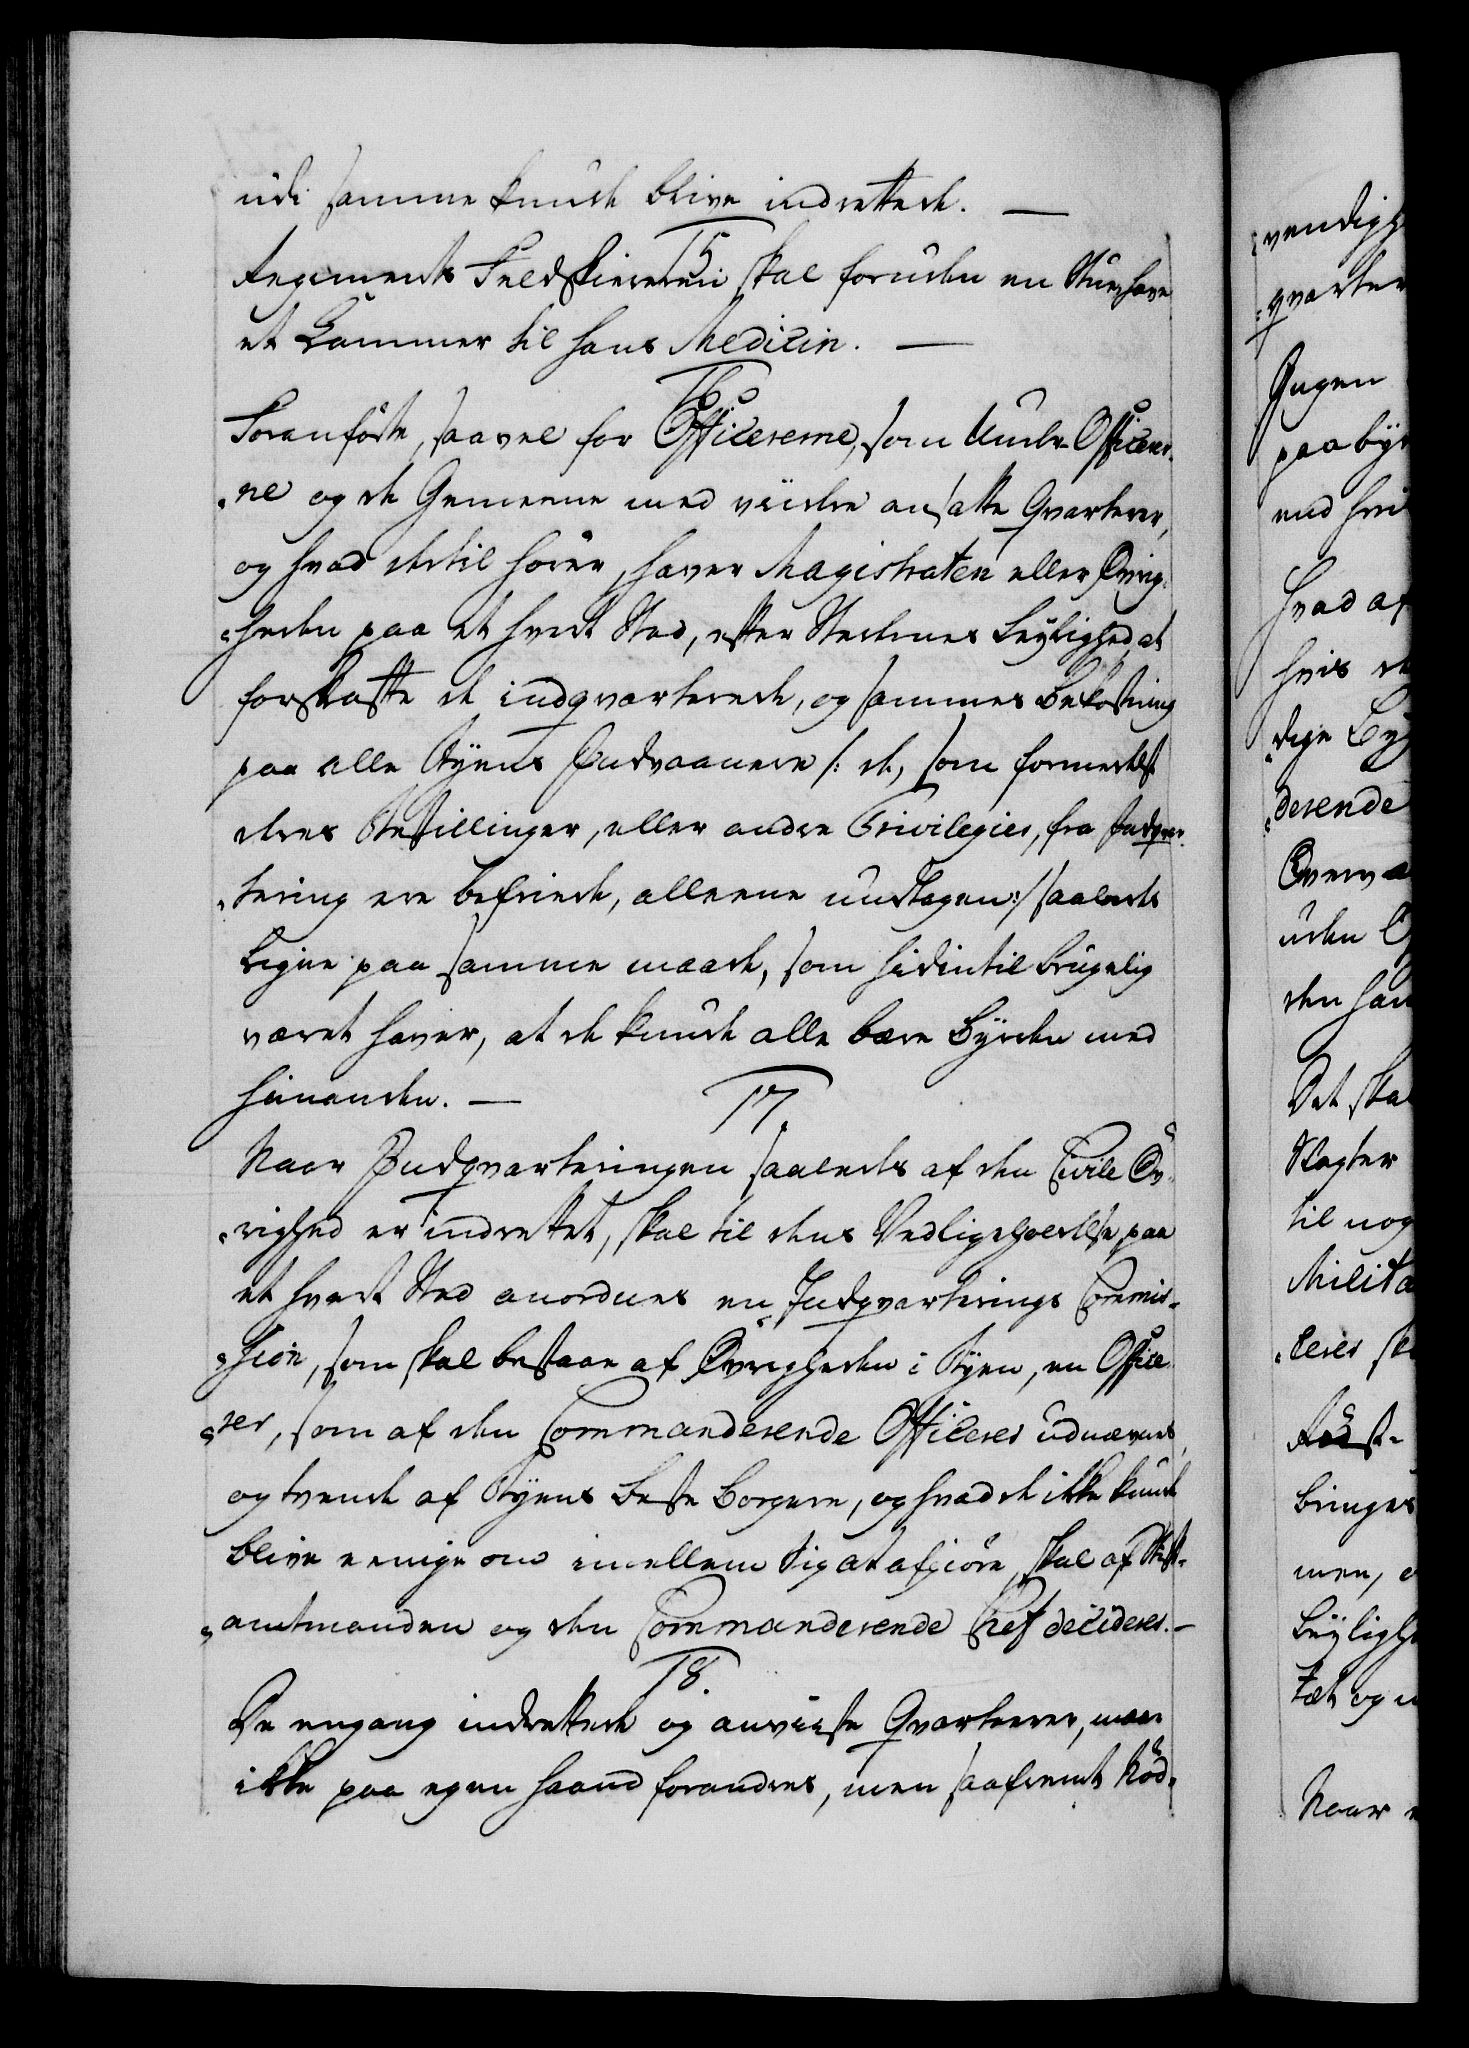 udi samme kunde blive indrettede. —
15
Regiments Feldskiereren skal foruden en Stue, have
et Kammer til hans Medicin. —
16
Foranförte, saavel for Officererne, som Under-Officerer-
ne og de Gemeene med viidre ansatte Qvarterer,
og hvad dertil hörer, haver Magistraten eller Övrig-
heden paa et hvert Sted, efter Stedernes Leylighed at
forskaffe de indqvarterede, og sammes Bekostning
paa alle Byens Indvaanere /: de, som formedelst
deres Bestillinger, eller andre Privilegier, fra Indqvar-
tering ere befriede, alleene undtagen :/ saaledes
Ligne paa samme maade, som hidintil brugelig
været haver, at de kunde alle bære Byrden med
hinanden. —
17.
Naar Indqvarteringen saaledes af den Civile Öv-
righed er indrettet, skal til dens Vedligeholdelse, paa
et hvert Sted anordnes en Indqvarterings Commis-
sion, som skal bestaae af Övrigheden i Byen, en Office-
rer, som af den Commanderende Officerer udnævnes,
og tvende af Byens beste Borgere, og hvad de ikke kunde
blive eenige om imellem sig at afgiöre, skal af Stift-
amtmanden og den Commanderende Chef decideres. —
18.
De engang indrettede og anviiste Qvarterer, maae
ikke paa egen haand forandres, men saafremt Nöd-
vendigh
qvarter
Ingen
paabyr
end hvi
Hvad af
hvis de
dige Ley
derende
Overvæ
uden O
den han
Det skal
Slagter
til nog
Milita
cerer sk
bringes
men, o
Leyligh
tæt og u
Naar